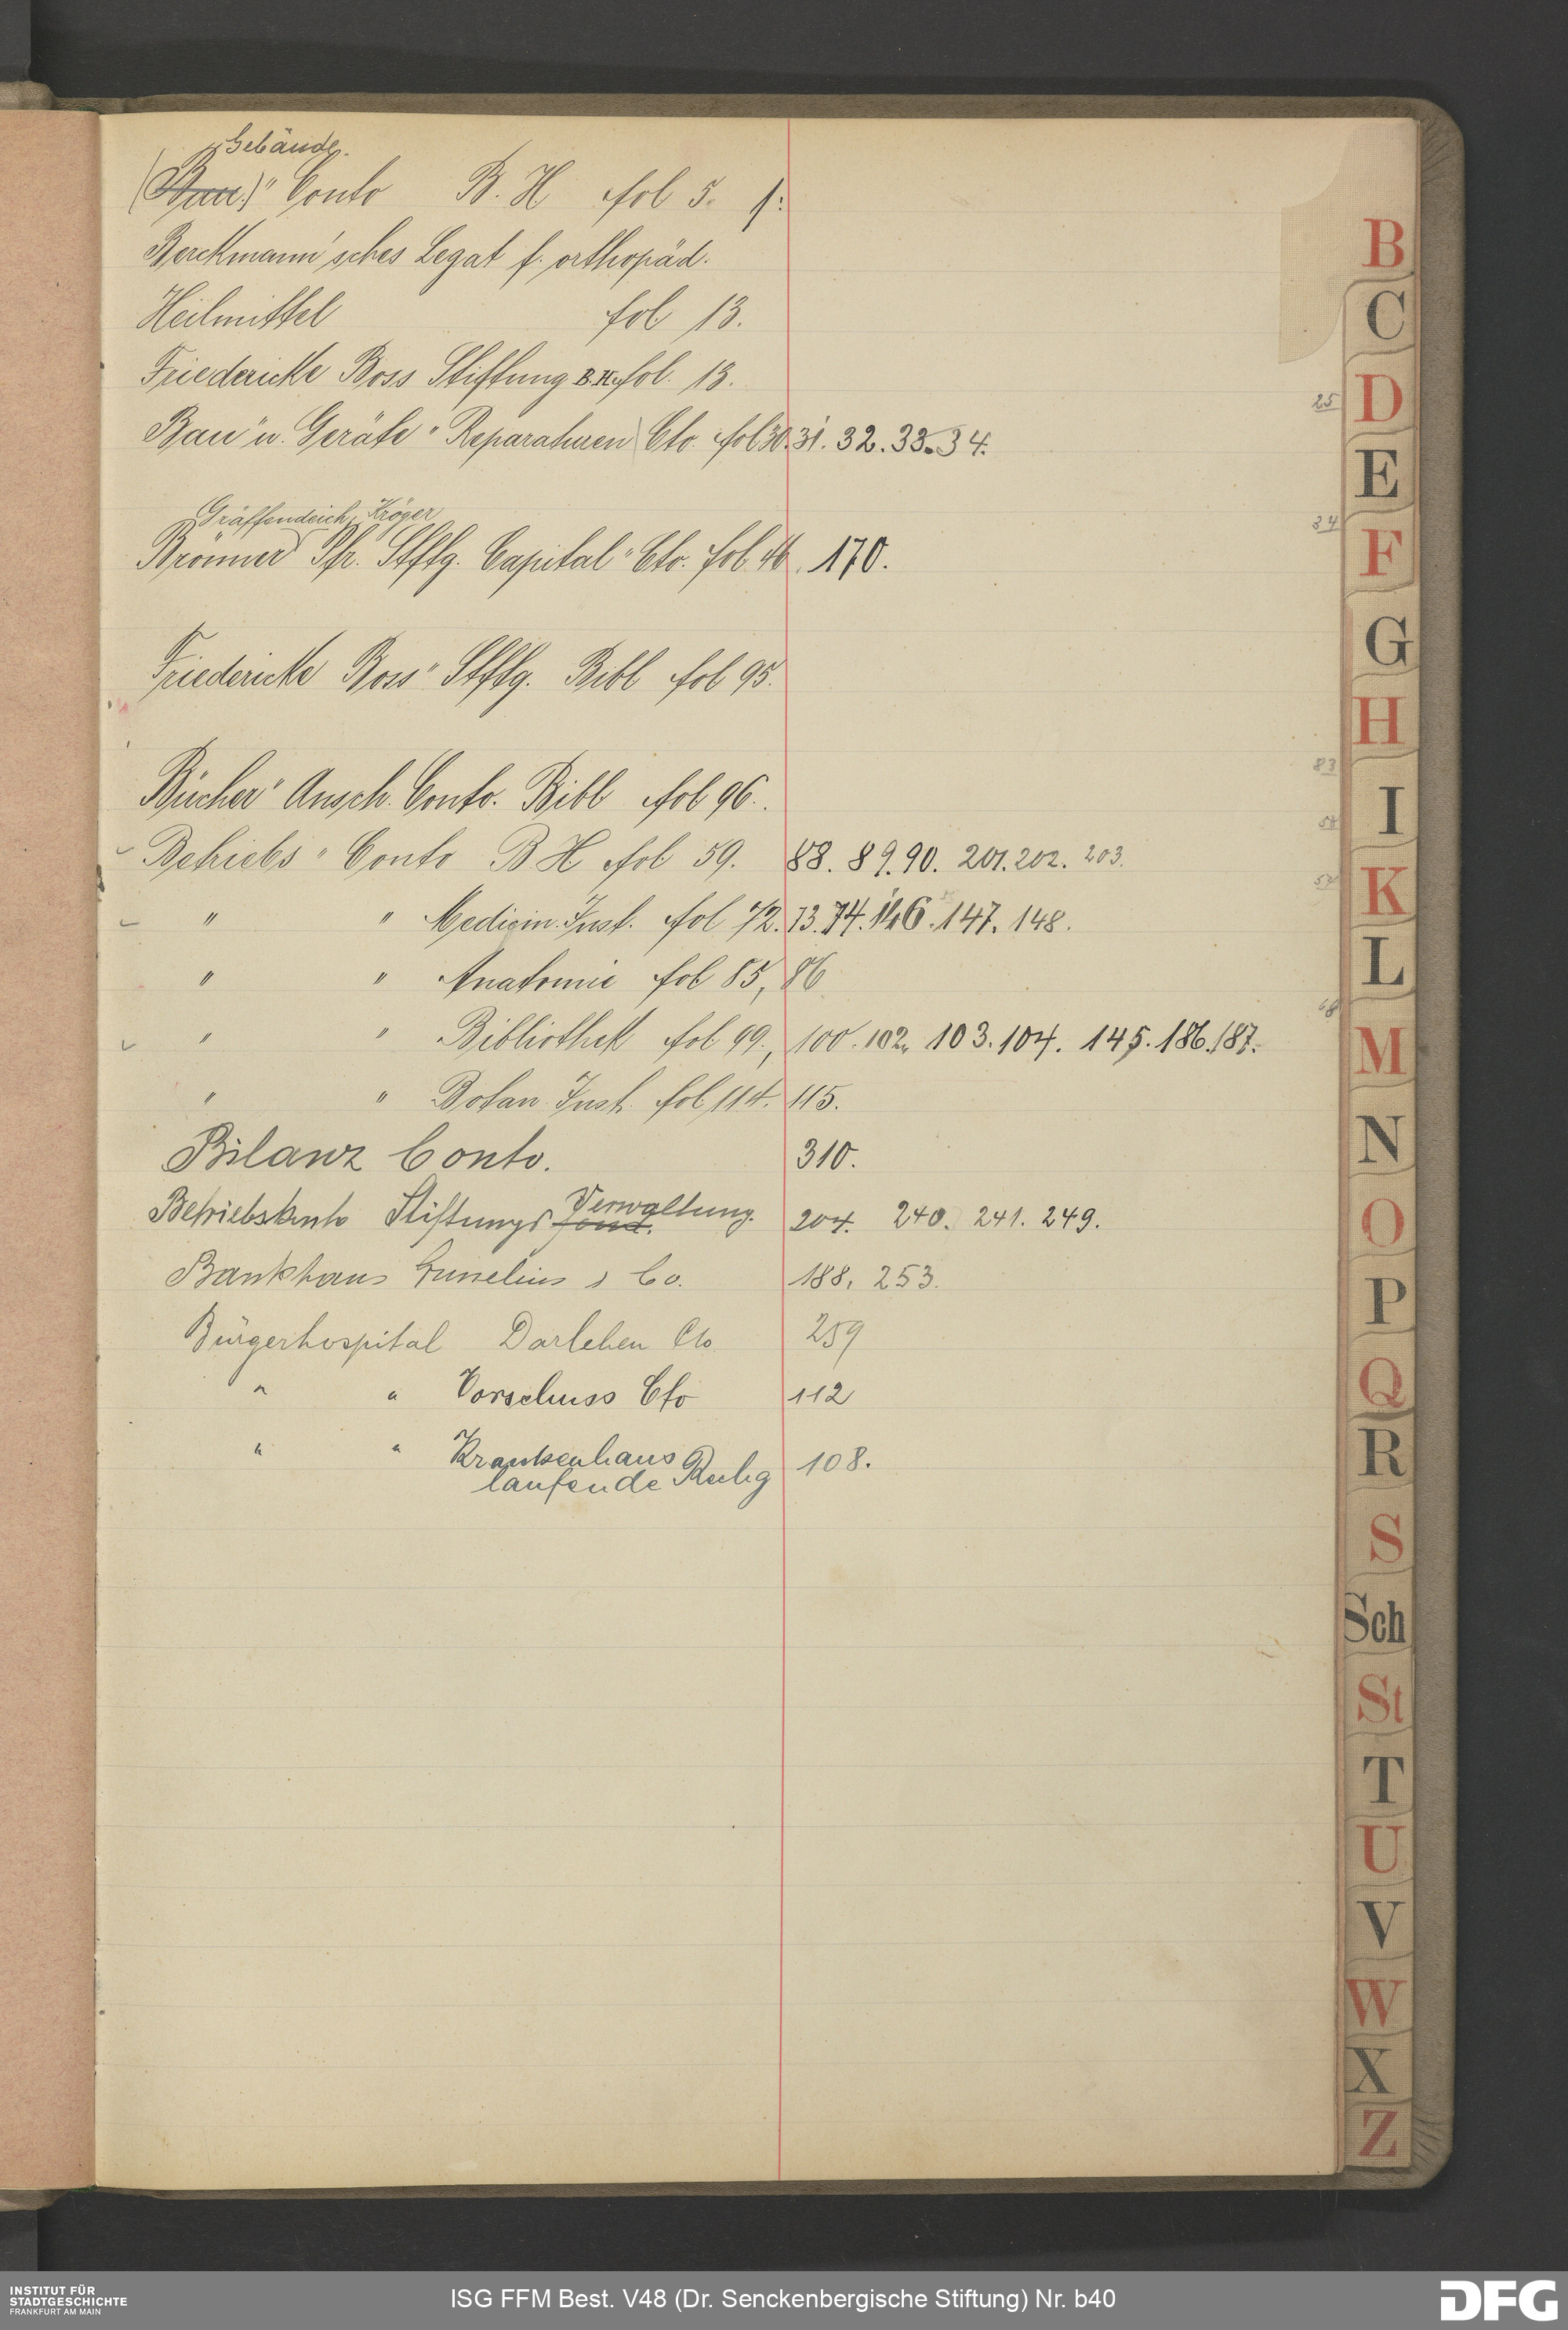 "Gebäude
(Bau)" Conto B. H fol 5.
Berckmann'sches Legat f. orthopäd.
Heilmittel fol 13.
Friedericke Boss Stiftung B.H. fol. 13.
Bau" u. Geräte" Reparaturen Cto. fol 30. 31. 32. 33. 34.
Gräffendeich, Kröger
Brönner Pfr. Stftg. Capital" Cto. fol. 170.
Friedericke Boss" Stftg. Bibl fol 95.
Bücher" Ansch. Conto. Bibl fol 96.
Betriebs" Conto B H fol 59. 88. 89. 90. 201. 202. 203.
" " Medicin. Inst. fol 72. 73. 74. 146. 147. 148.
" " Anatomie fol 85, 86
" " Bibliothek fol 99., 100. 102. 103. 104. 145. 186. 187.
" " Botan. Inst. fol 114. 115.
Bilanz Conto. 310.
Verwaltung.
Betriebskonto Stiftungsfond. 204. 240. 241. 249.
Bankhaus Grunelius & Co. 188, 253.
Bürgerhospital Darlehen Cto 259
" " Vorschuss Cto 112
" " Krankenhaus
laufende Rechg 108.
25
34
83
B
C
D
E
F
G
H
I
K
L
M
N
O
P
Q
R
S
Sch
St
T
U
V
W
X
Z
INSTITUT FÜR
STADTGESCHICHTE
FRANKFURT AM MAIN
ISG FFM Best. V48 (Dr. Senckenbergische Stiftung) Nr. b40
DFG